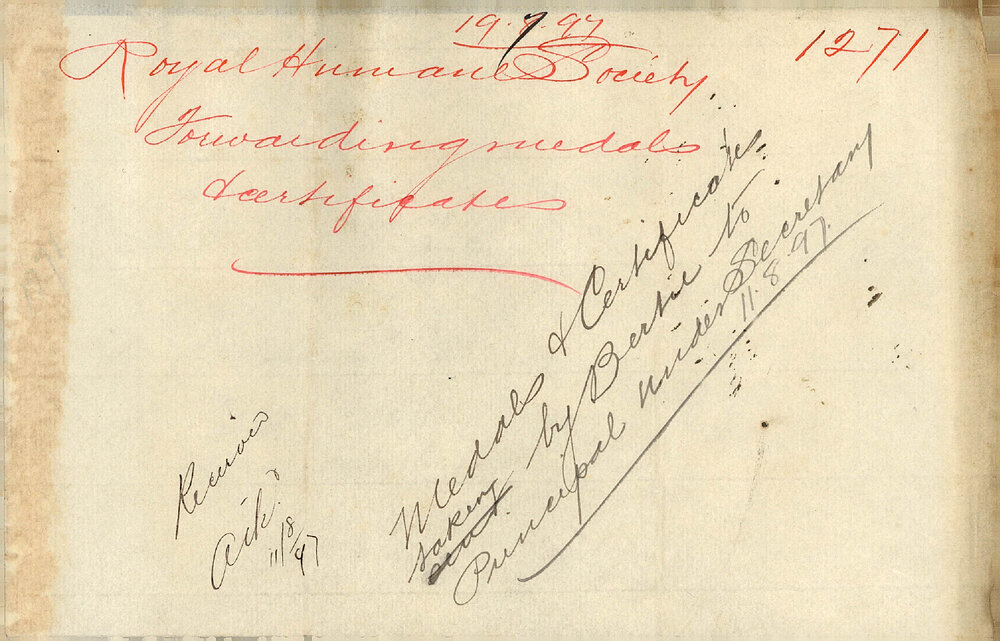 19.7.97
1271
Royal Humane Society
Forwarding medals
& certificates
Medals & Certificates
taking
sent by Bertie to
Principal Under Secretary
11.8.97.
Ack.
11/8/97